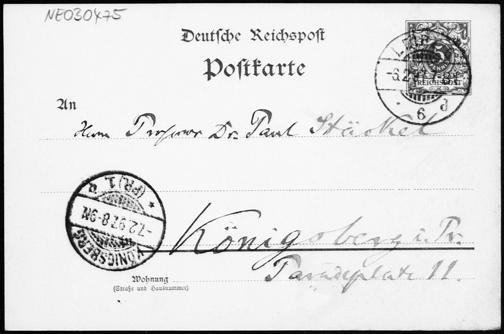 NE030475
Deutsche Reichspost
Postkarte
5
REICHSPOST
6
d
An
Herrn Professor Dr. Paul Stäckel
KÖNIGSBERG (PR.) 1. a
-7.2.97.8-9N
Königsberg i. Pr.
Paradeplatz 11.
Wohnung
(Straße und Hausnummer)